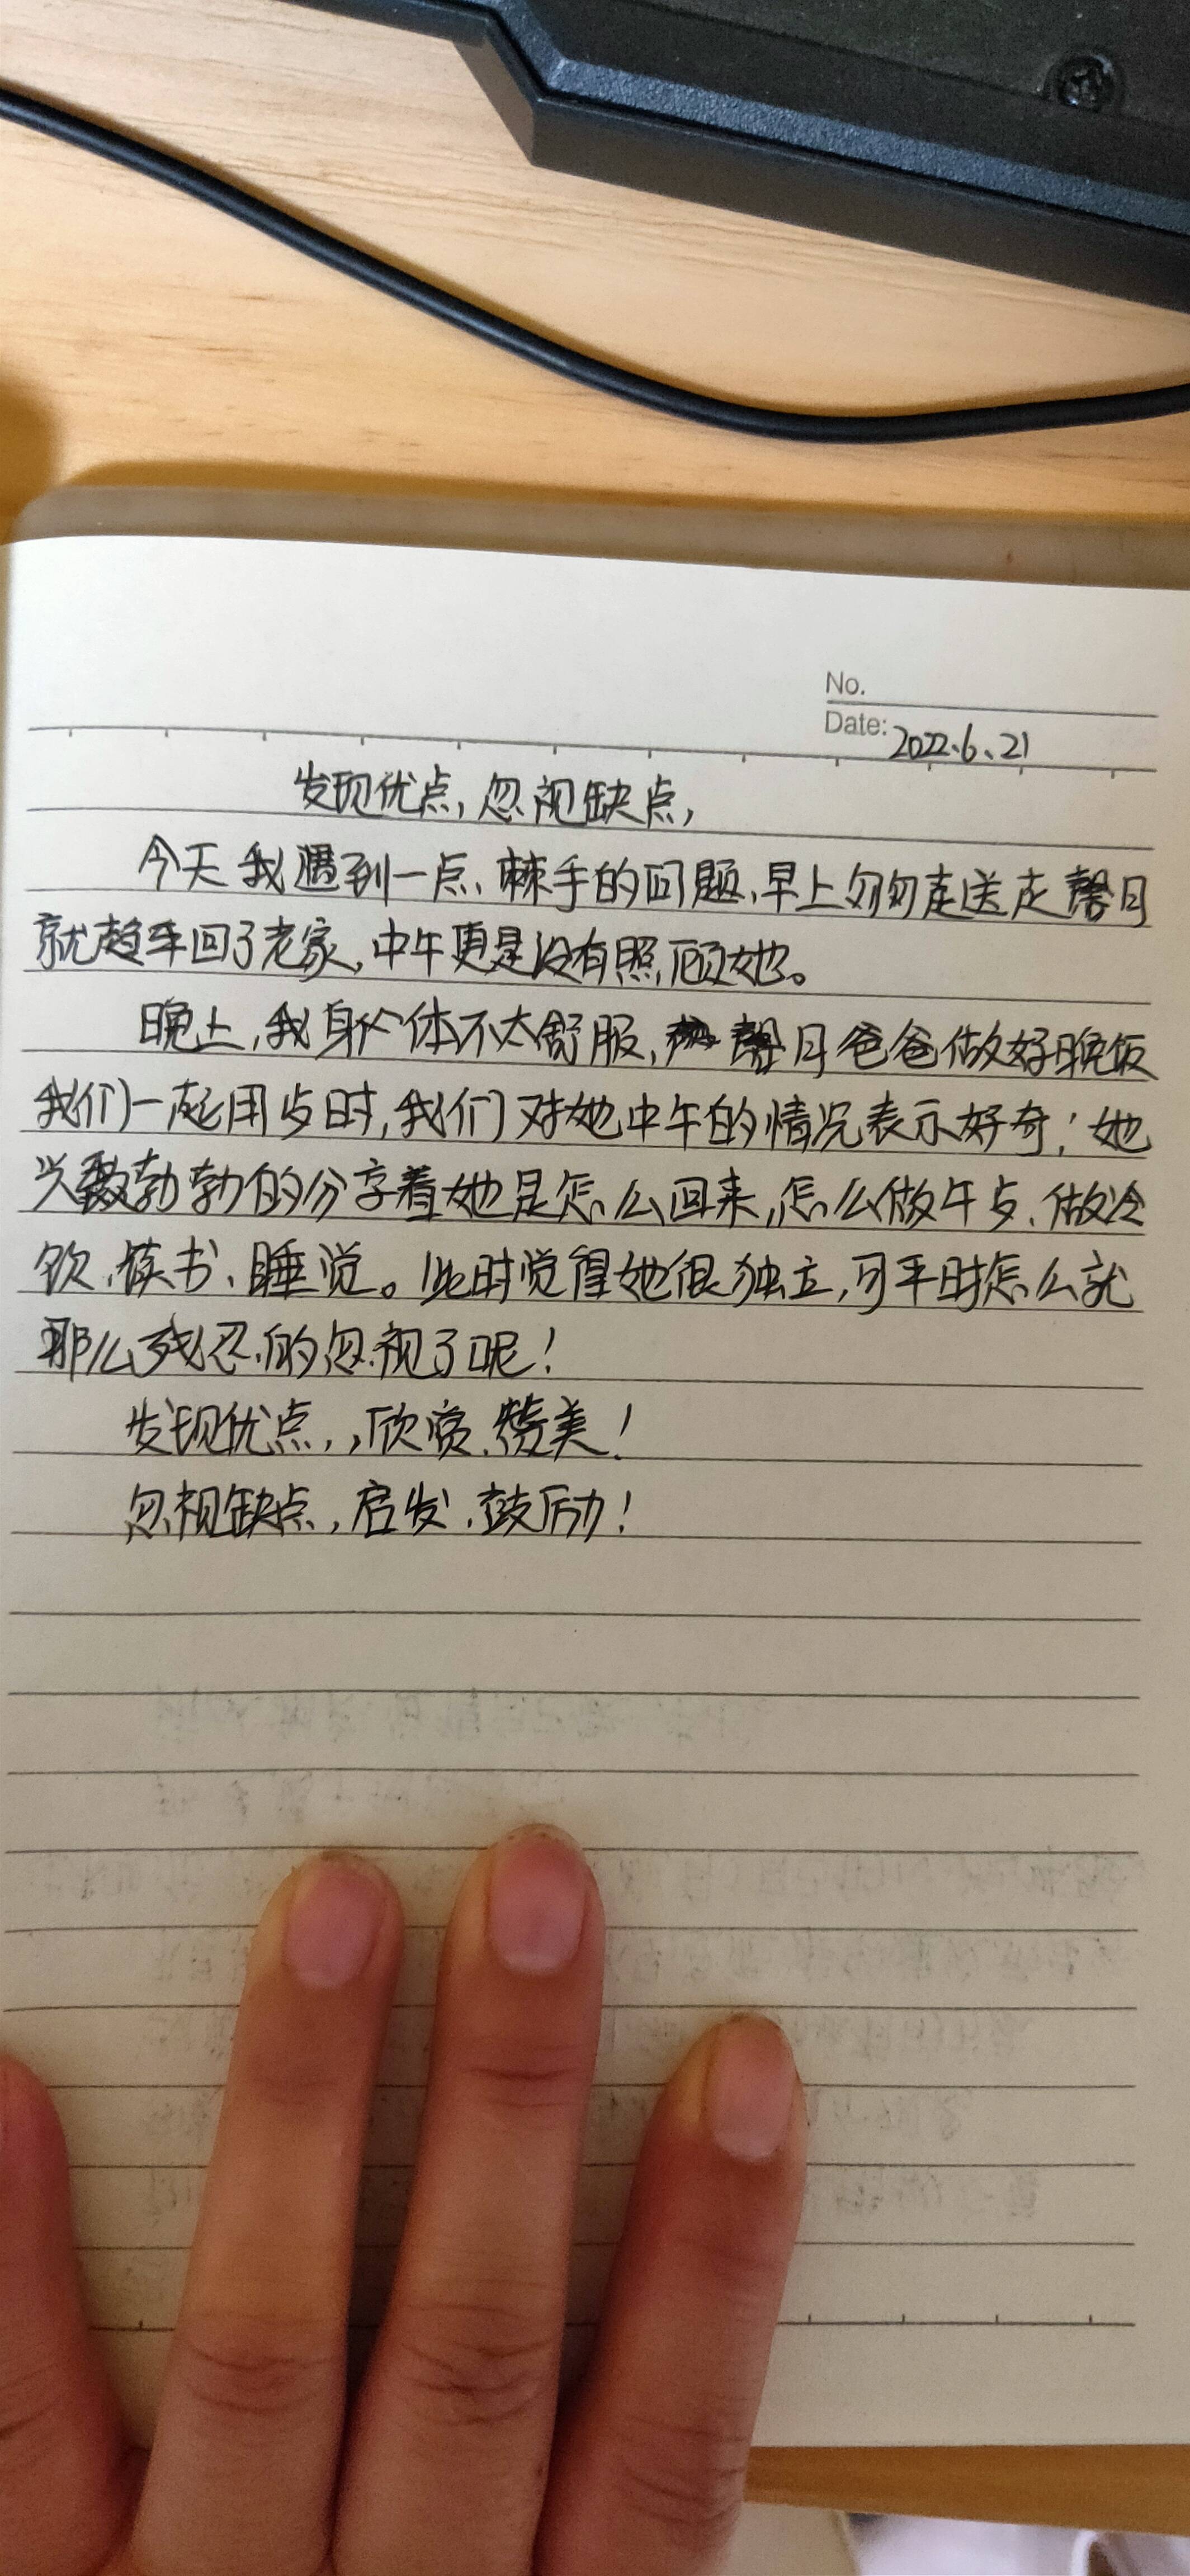 No.
Date: 2022.6.21
发现优点,忽视缺点,
今天我遇到一点、棘手的问题,早上匆匆走送走馨月
就趁车回了老家,中午更是没有照顾她。
晚上,我身体不太舒服,馨月爸爸做好晚饭
我们一起用歺时,我们对她中午的情况表示好奇!她
兴致勃勃的分享着她是怎么回来,怎么做午歺、做冷
饮、读书、睡觉。此时觉得她很独立,可平时怎么就
那么残忍的忽视了呢!
发现优点,,欣赏、赞美!
忽视缺点,启发、鼓励!